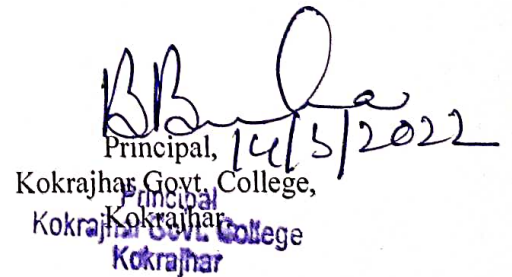 Principal, 14/3/2022
Kokrajhar Govt. College,
Kokrajhar
Principal
Kokrajhar Govt. College
Kokrajhar